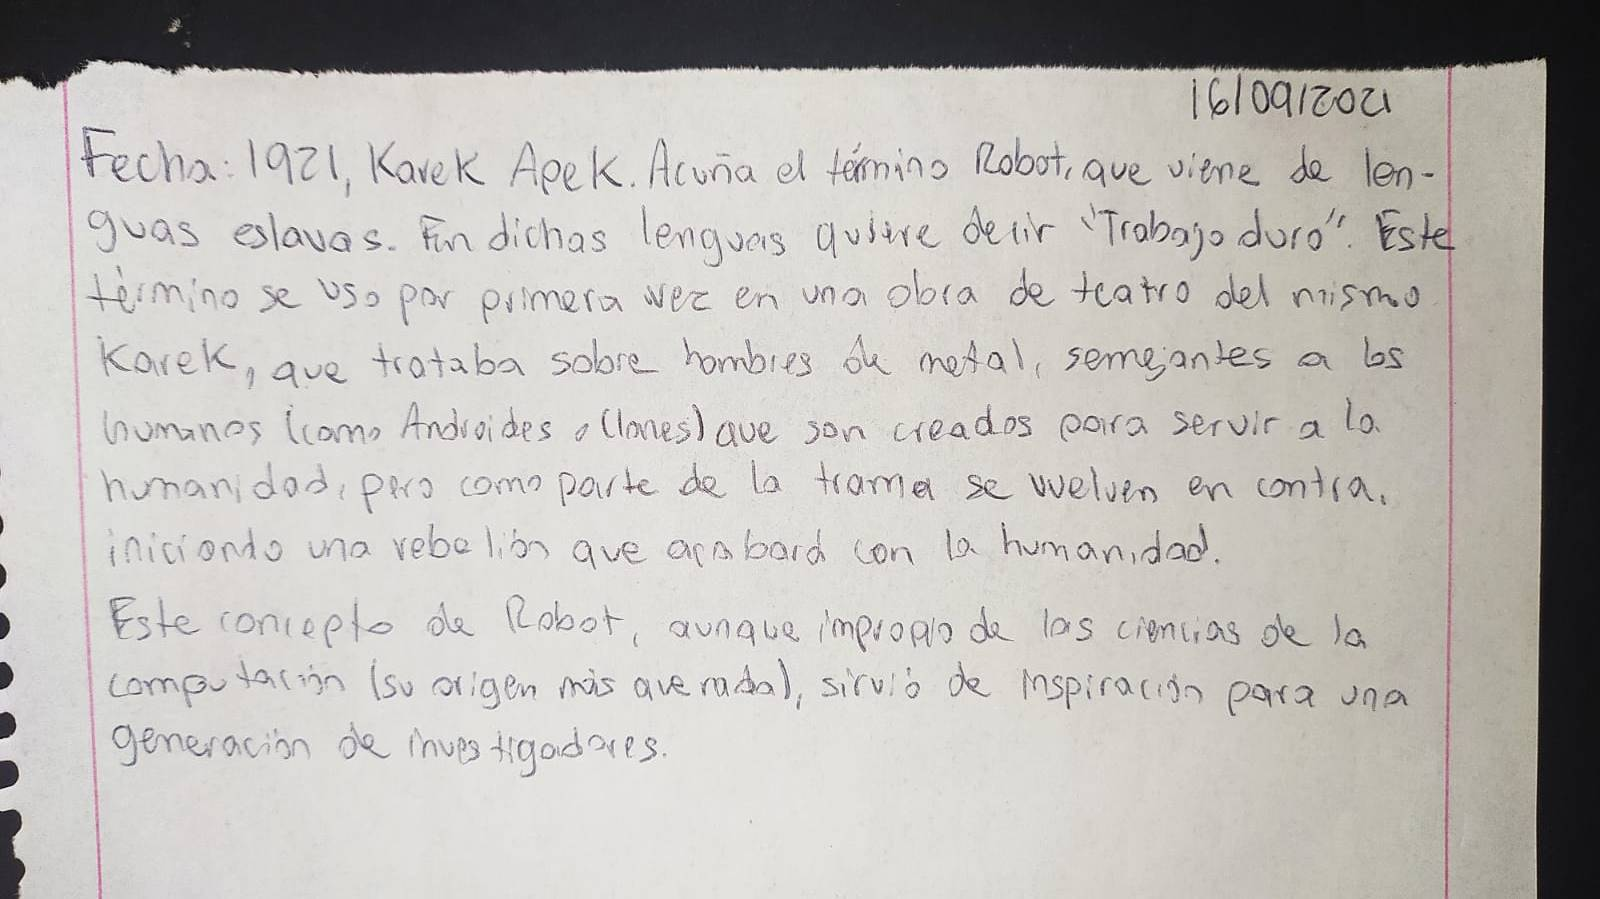 16/09/2021
Fecha: 1921, Karek Apek. Acuña el término Robot, que viene de len-
guas eslavas. En dichas lenguas quiere decir "Trabajo duro". Este
término se uso por primera vez en una obra de teatro del mismo
Karek, que trataba sobre hombres de metal, semejantes a los
humanos (como Androides o Clones) que son creados para servir a la
humanidad, pero como parte de la trama se vuelven en contra,
iniciando una rebelión que acabará con la humanidad.
Este concepto de Robot, aunque impropio de las ciencias de la
computación (su origen más que nada), sirvió de inspiración para una
generación de investigadores.